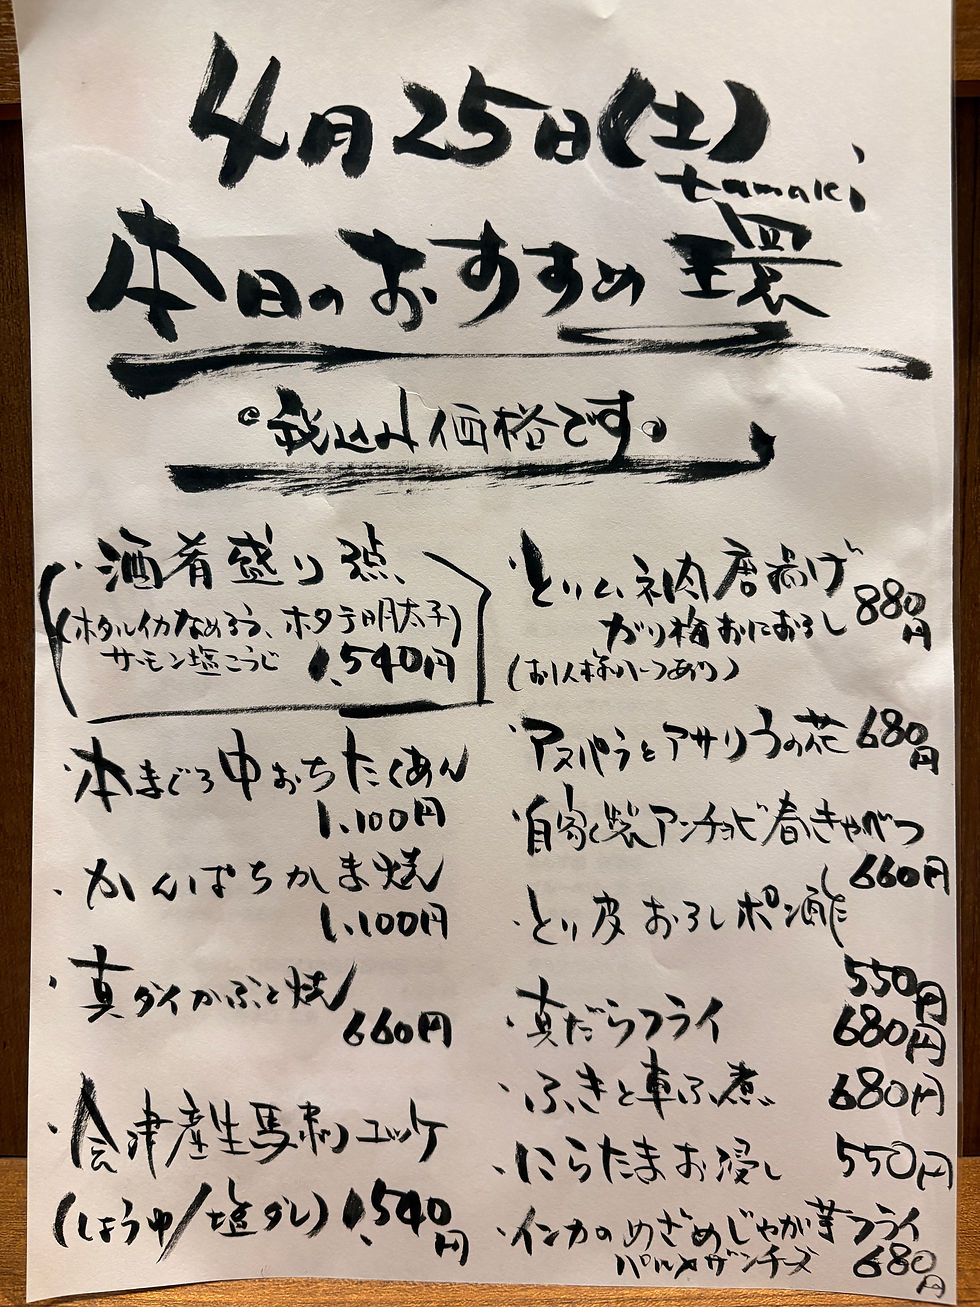 4月25日(土)
tamaki
本日のおすすめ 環
税込み価格です。
・酒肴盛り3点
(ホタルイカなめろう、ホタテ明太子)
サーモン塩こうじ 1,540円
・本まぐろ中おちたくあん
1,100円
・かんぱちかま焼
1,100円
・真ダイかぶと焼
660円
・会津産生馬刺ユッケ
(しょうゆ/塩ダレ) 1,540円
・とりムネ肉唐揚げ
ガリ梅おにおろし 880円
(お1人様ハーフあり)
・アスパラとアサリうの花 680円
・自家製アンチョビ春きゃべつ
660円
・とり皮おろしポン酢
550円
・真だらフライ 680円
・ふきと車ふ煮 680円
・にらたまお浸し 550円
・インカのめざめじゃが芋フライ
パルメザンチーズ 680円